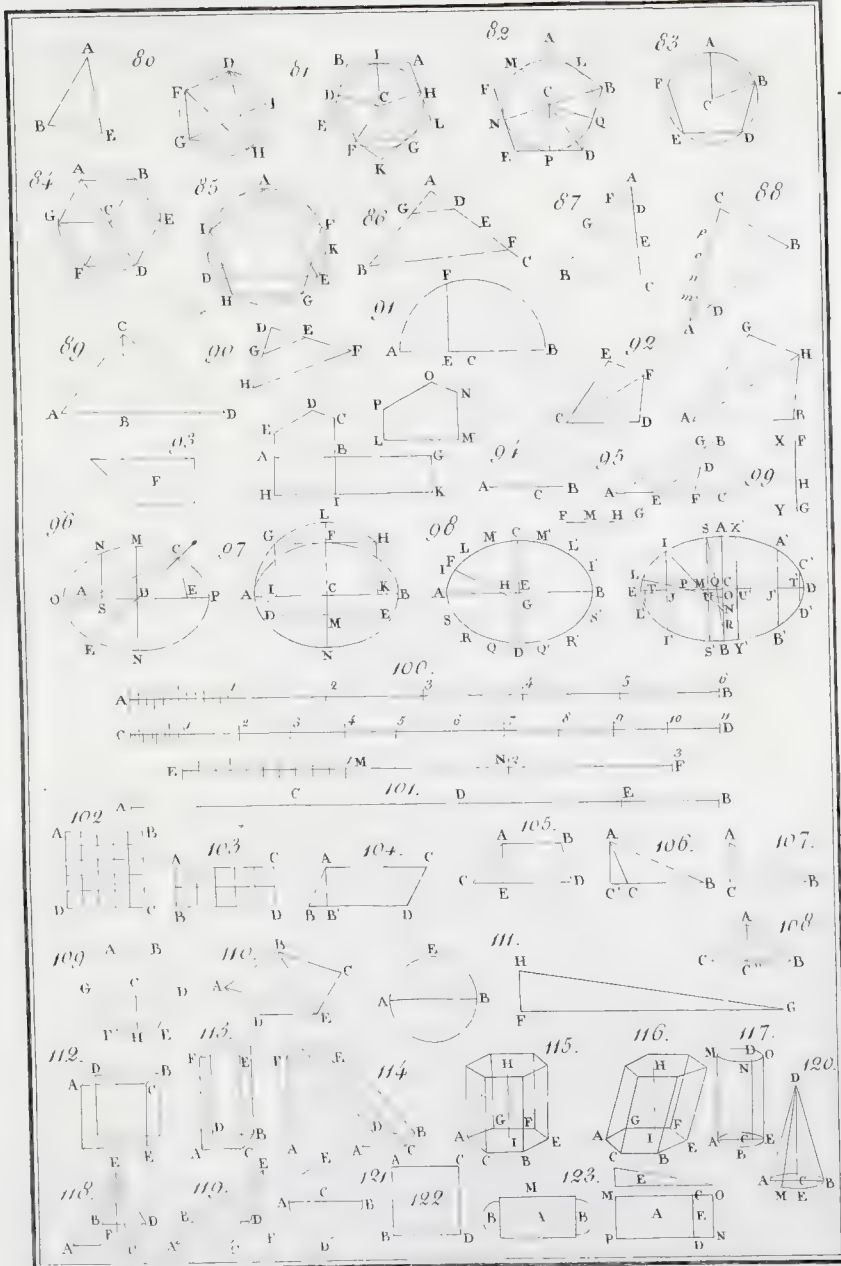 A 80 D I 81 B I A 82 A L 83 A
B E F G H D C H E L F G K M F B C N Q E P D F B C E D
84 A B G C E F D 85 A I F K D E H G 86 A G D E F B C 87 A F D G E B C 88 C B P o n m D A
89 C A B D 90 D E G F H 91 F A E C B 92 E F C D G H A B
93 F E D C A B G H I K P O N L M 94 A C B 95 A E D F C G B F M H G 99 X F H Y G
96 N M C O A S D E P E N 97 L G F H A I C K B D M E N 98 M C M' L L' F I I' A H E B G S S' R R' Q D Q' S A X' I A' L C' E T J P M Q C H O U' J' T' D N R L' D' I' B' S' B Y'
100.
A 1 2 3 4 5 6 B
C 1 2 3 4 5 6 7 8 9 10 11 D
E 1 M N 2 3 F
101.
A C D E B
102 A B D C 103 A C B D 104. A C B B' D 105. A B C E D 106. A C' C B 107. A C B
108 A C C" B
109 A B G C D F H E 110. B C A D E E A B 111. H F G
112. D B A C E E 113. F E D B A C F E 114 D B A C 115. H G F A I E C B 116. H G F A I E C B 117. M D O N A C E B 120. D A C B M E
118. E B D F A C 119. E D A C A E A C B F D 121 A C 122 B D M B A B 123. E M C O A E P D N